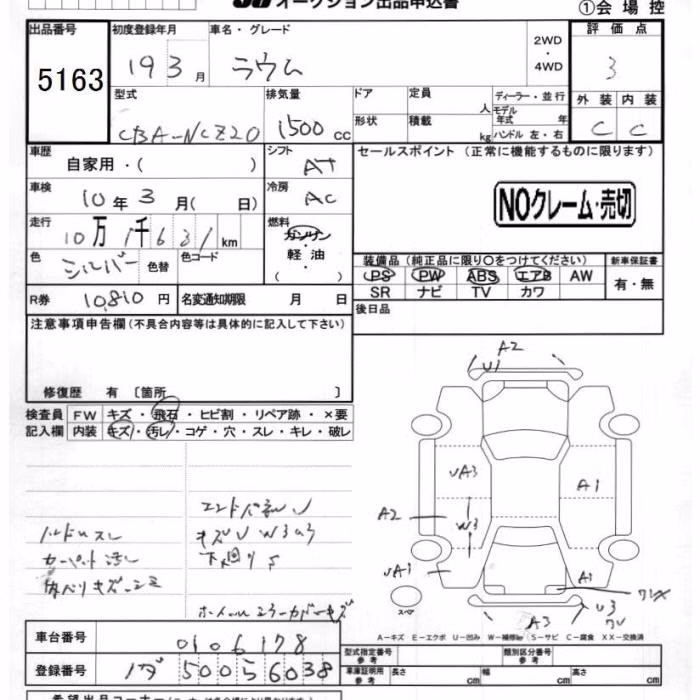 オークション出品申込書
①会場控
出品番号
5163
初度登録年月
19 3 月
車名・グレード
ラウム
2WD
・
4WD
評価点
3
型式
CBA-NCZ20
排気量
1500 cc
ドア
形状
定員 人
積載 kg
ディーラー・並行
モデル年式 年
ハンドル 左・右
外装 内装
C C
車歴
自家用・( )
シフト
AT
セールスポイント (正常に機能するものに限ります)
NOクレーム・売切
車検
10年3月( 日)
冷房
AC
走行
10万1千631km
燃料
ガソリン
・
軽油
( )
色
シルバー
色替
色コード
装備品 (純正品に限り○をつけてください)
PS PW ABS エアB AW
SR ナビ TV カワ
新車保証書
有・無
R券
10,810円
名変通知期限 月 日
後日品
注意事項申告欄(不具合内容等は具体的に記入して下さい)
修復歴 有 〔箇所 〕
検査員
記入欄
FW キズ・飛石・ヒビ割・リペア跡・×要
内装 キズ・汚レ・コゲ・穴・スレ・キレ・破レ
ハンドルスレ
カーペット汚レ
内ハリキズ・コミ
エンドパネルU
キズU W3U3
下回りS
ホイールコラーカバーキズ
A2
U1
UA3
A1
A2
W3
UA1
A1
スペア
A3
U3
A-キズ E-エクボ U-凹み W-補修 S-サビ C-腐食 XX-交換済
車台番号
0106178
登録番号
ノダ 500 56038
型式指定番号
参考
類別区分番号
参考
車庫証明用
参考
長さ cm 幅 cm 高さ cm
希望出品コーナー